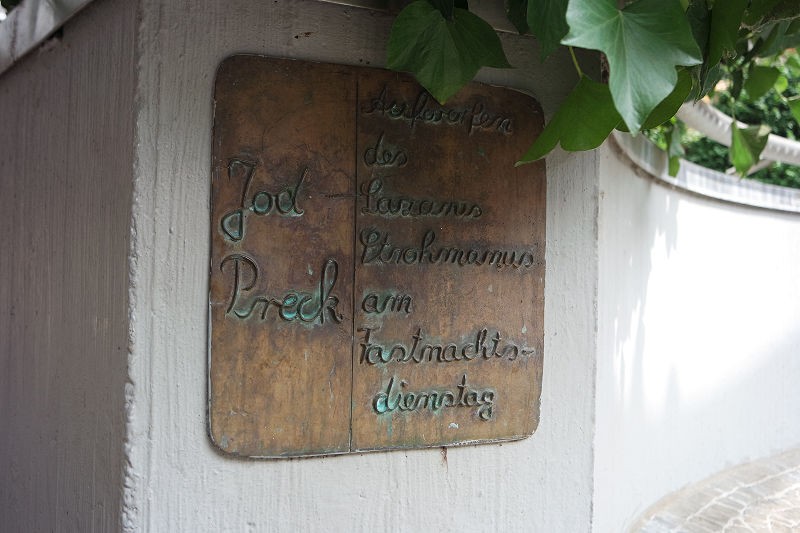 Jod
Preck
Aufwerfen
des
Lazarus
Strohmanus
am
Fastnachts-
dienstag